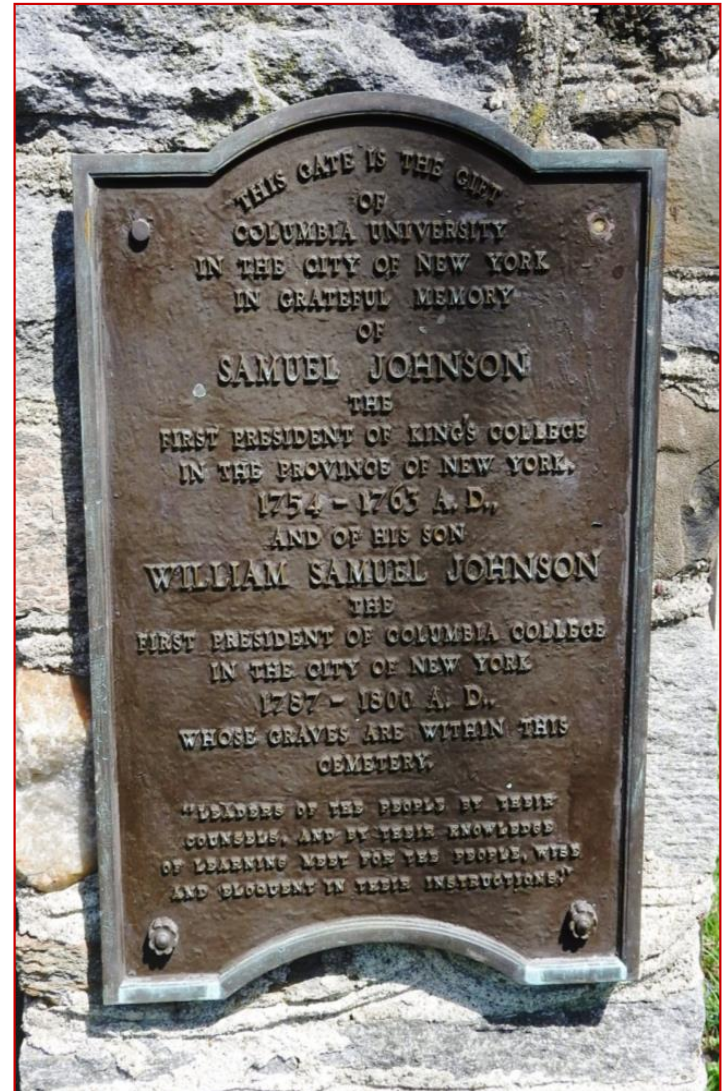 THIS GATE IS THE GIFT
OF
COLUMBIA UNIVERSITY
IN THE CITY OF NEW YORK
IN GRATEFUL MEMORY
OF
SAMUEL JOHNSON
THE
FIRST PRESIDENT OF KING'S COLLEGE
IN THE PROVINCE OF NEW YORK,
1754 - 1763 A. D.,
AND OF HIS SON
WILLIAM SAMUEL JOHNSON
THE
FIRST PRESIDENT OF COLUMBIA COLLEGE
IN THE CITY OF NEW YORK
1787 - 1800 A. D.,
WHOSE GRAVES ARE WITHIN THIS
CEMETERY.
"LEADERS OF THE PEOPLE BY THEIR
COUNSELS, AND BY THEIR KNOWLEDGE
OF LEARNING MEET FOR THE PEOPLE, WISE
AND ELOQUENT IN THEIR INSTRUCTIONS."